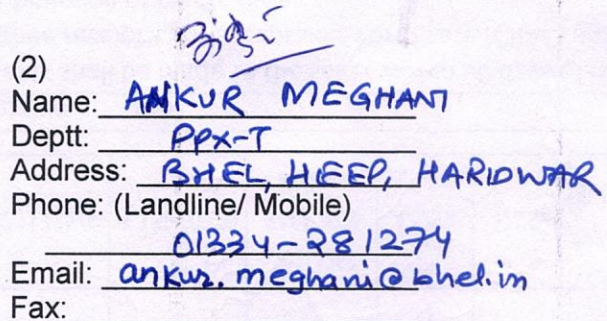 (2)
Name: ANKUR MEGHANI
Deptt: PPX-T
Address: BHEL, HEEP, HARIDWAR
Phone: (Landline/ Mobile)
01334-281274
Email: ankur.meghani@bhel.in
Fax: